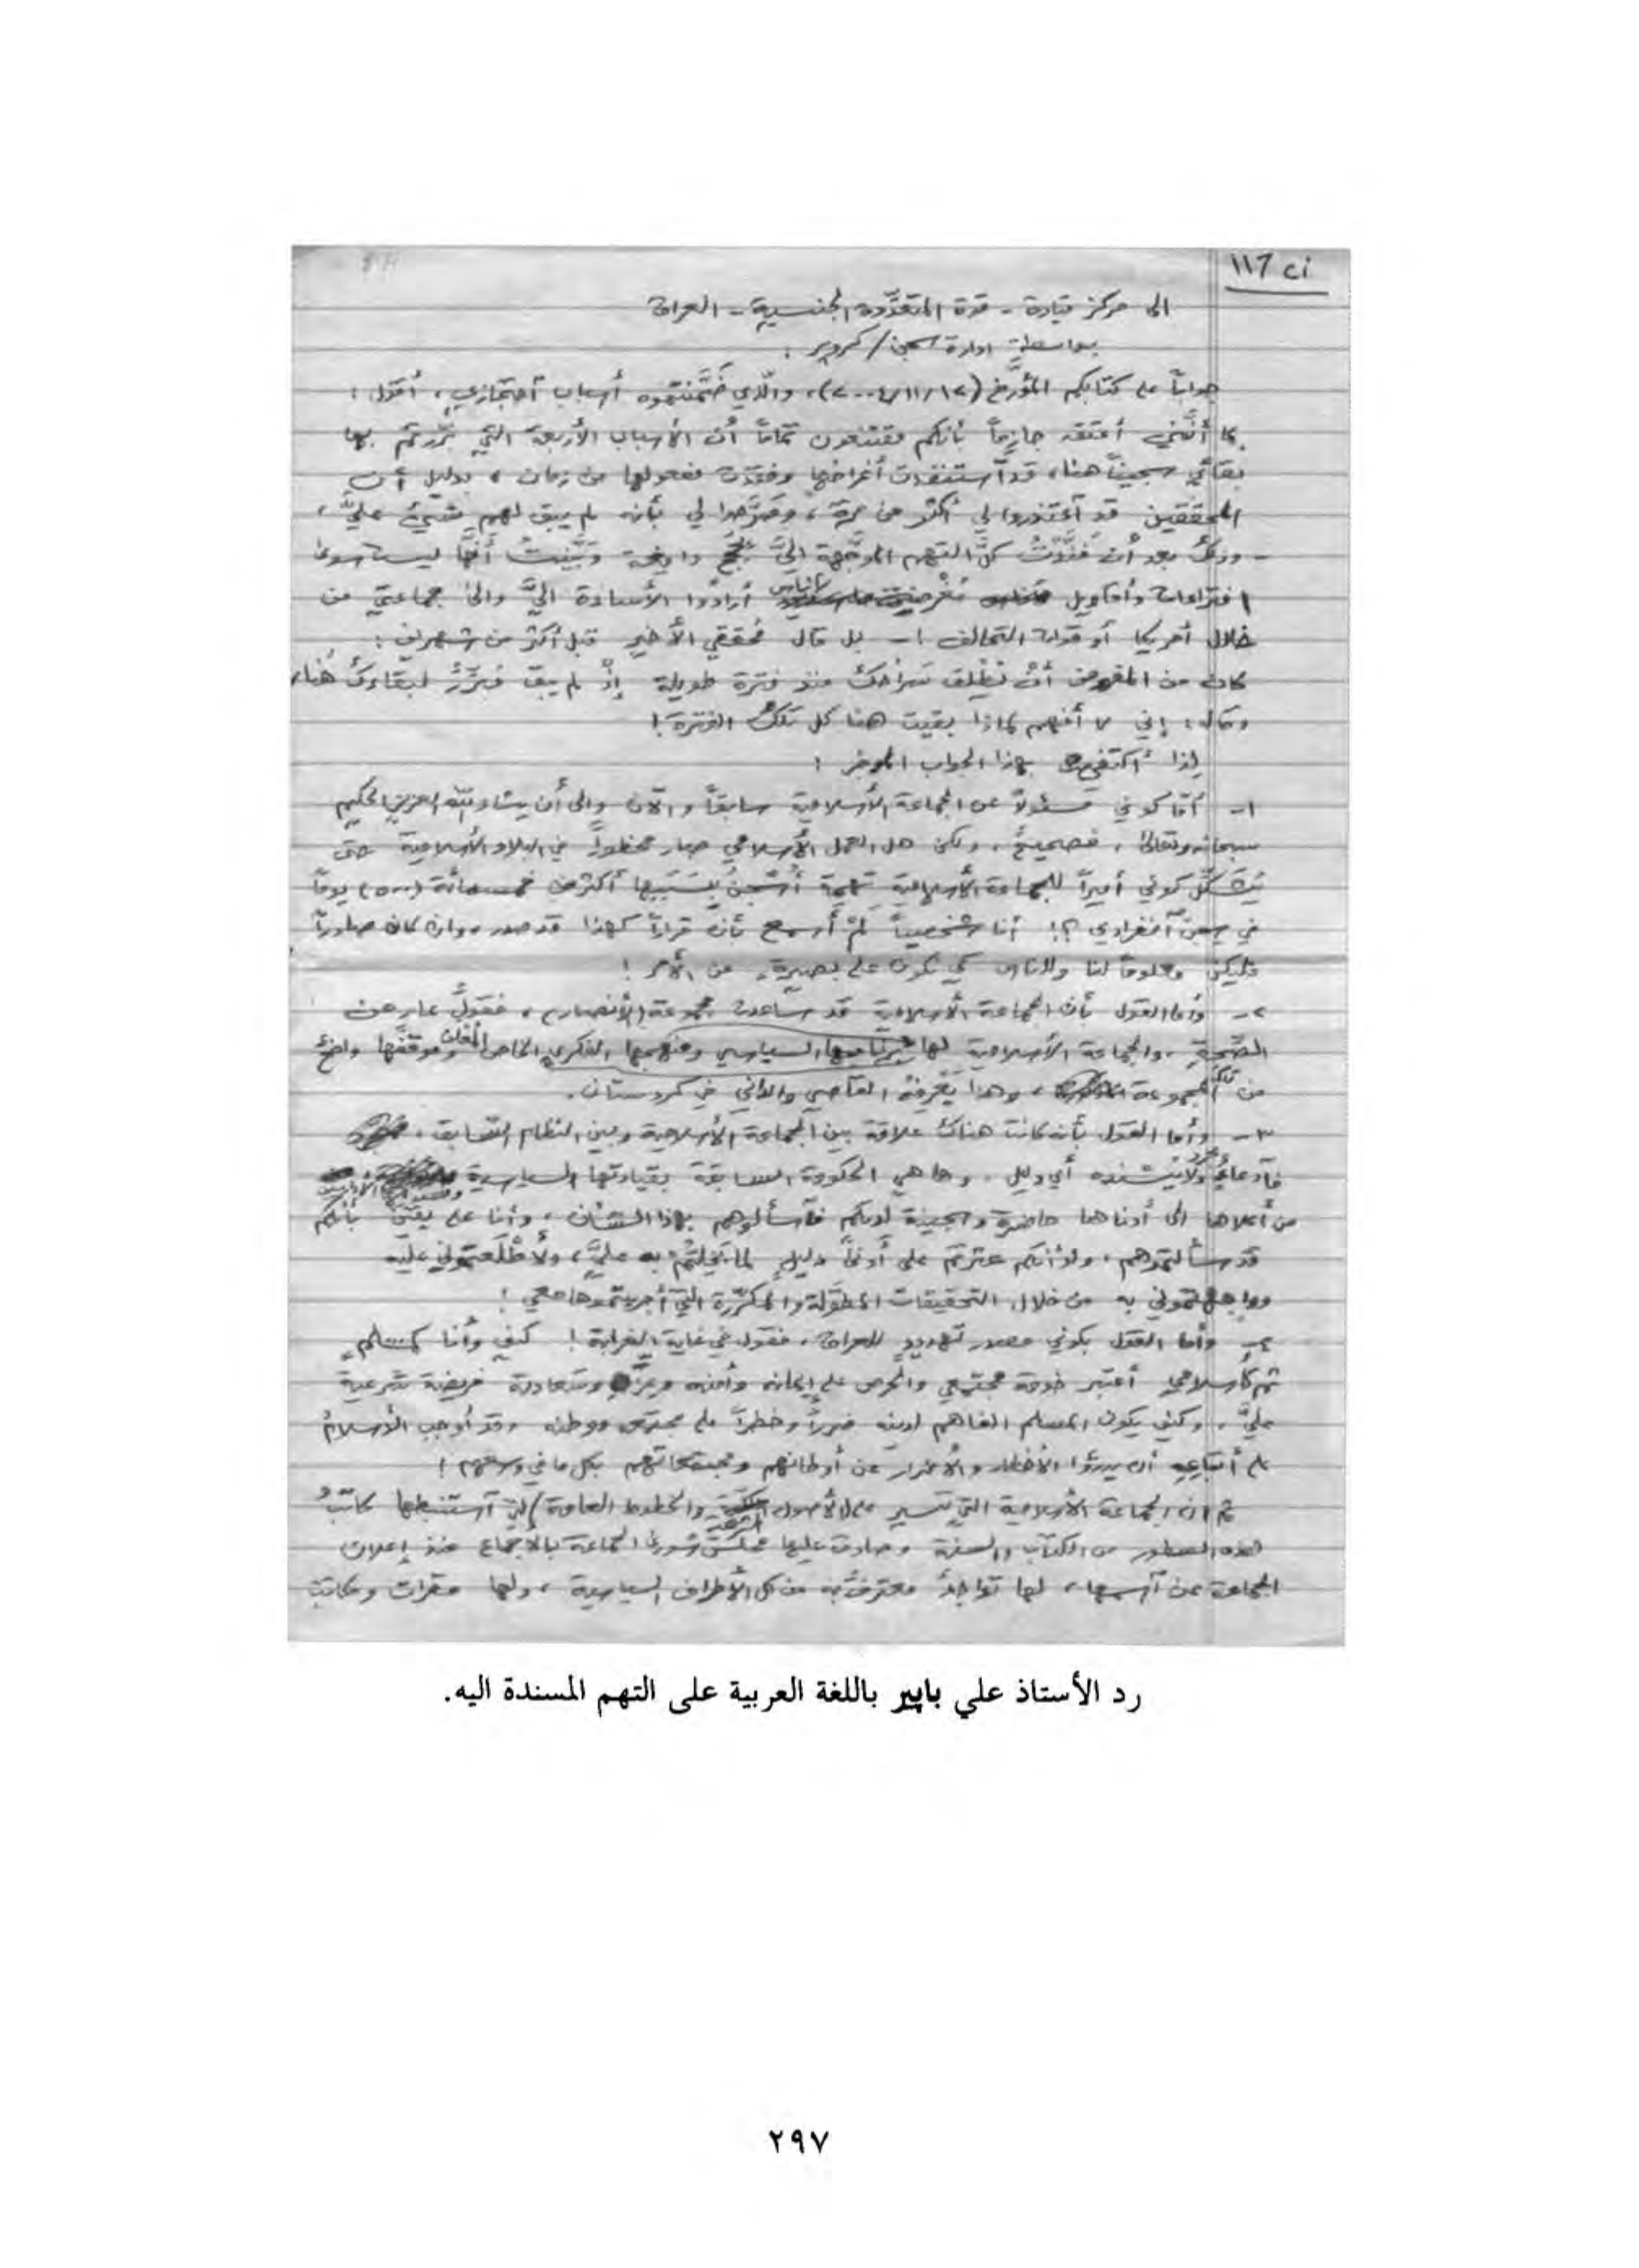 الى مركز قيادة - قوة المتعدّدة الجنسية - العراق
بواسطة ادارة سجن / كروپر :
جواباً على كتابكم المؤرَّخ (١٢/١١/٢٠٠٤)، والّذي ضَمَّنتموه أسباب آحتجازي، أقول :
بما أنَّني أعتقد جازماً بأنكم مقتنعون تماماً أن الأسباب الأربعة التي برّرتم بها
بقائي سجيناً هنا، قد آستنفدت أغراضها وفقدت مفعولها من زمان ، بدليل أن
المحققين قد آعتذروا لي أكثر من مرة ، وصَرَّحوا لي بأنه لم يبق لهم شيء عليَّ ،
- وذلك بعد أن فَنَّدْتُ كلَّ التهم الموجَّهة اليَّ بحُجَج واضحة وَبَيَّنتُ أَنَّها ليست سوى
افتراءات وأقاويل أناس مُغْرضين أرادوا الأساءة اليَّ والى جماعتي من
خلال أمريكا أو قوات التحالف ! - بل قال مُحققي الأخير قبل أكثر من شهرين :
كان من المفروض أنْ نُطْلِقَ سَرَاحَكَ منذ فترة طويلة إذْ لم يبقَ مُبَرِّرٌ لبقاءك هُناك
وقال : إني لا أفهم لماذا بقيت هنا كل تلكَ الفترة !
لِذا أكتفي بهذا الجواب الموجز :
١- أمّا كوني مسئولاً عن الجماعة الأسلامية سابقاً والآن والى أن يشاء الله العزيز الحكيم
سبحانه وتعالى ، فصحيحٌ ، ولكن هل العمل الأسلامي صار محظوراً في البلاد الأسلامية حتى
يُشَكِّلَ كوني أميراً للجماعة الأسلامية تهمة أُسْجَنُ بِسَبَبِها أكثر من خمسمائة (٥٠٠) يوماً
في سجنٍ آنفرادي ؟! أنا شخصياً لَمْ أسمع بأنَّ قراراً كهذا قد صدر، وان كان صادراً
فليكن معلوماً لنا وللناس كي نكون على بصيرة من الأمر !
٢- وأما القول بأن الجماعة الأسلامية قد ساعدت مجموعة (الأنصار)، فقولٌ عارٍ عن
الصّحة، والجماعة الأسلامية لها برنامجها السياسي ومنهجها الفكري الخاص وموقفها واضح
من تلك المجموعة ، وهذا يَعْرِفهُ القاصي والداني في كردستان.
٣- وأما القول بأنه كانت هناك علاقة بين الجماعة الأسلامية وبين النظام السّابق ،
فآدعاءٌ ولا يَسْنده أي دليل . وها هي الحكومة السابقة بقيادتها السياسية
من أعلاها الى أدناها حاضرة وسجينة لديكم فآسألوهم بهذا الشأن ، وأنا على يقين بأنكم
قد سألتموهم ، ولو أنكم عثرتم على أدنى دليل لما بَخِلْتُمْ به عليَّ ، ولأطْلَعتموني عليه
وواجهتموني به من خلال التحقيقات المُطَوَّلة والمُكرَّرة التي أجريتموها معي !
٤- وأما القول بكوني مصدر تهديدٍ للعراق ، فقول في غاية الغرابة ! كيف وأنا كمسلمٍ
ثم كأسلامي أعتبر خدمة مجتمعي والحرص على إيمانه وأمنه وعِزّه وسعادته فريضة شرعية
عليَّ . وكيف يكون المسلم الفاهم لدينه ضرراً وخطراً على مجتمعه ووطنه وقد أوجب الأسلامُ
على أتباعِهِ أن يدرؤا الأخطار والأضرار عن أوطانهم ومجتمعاتهم بكل ما في وسعهم !
ثم ان الجماعة الأسلامية التي تسير على الأصول الشرعية والخطوط العامة التي آستنبطها كاتبُ
هذه السطور من الكتاب والسنة وصادق عليها مجلس شورى الجماعة بالأجماع منذ إعلان
الجماعة عن آسمها ، لها تواجدٌ معترفٌ به من كل الأطراف السياسية ، ولها مقرات ومكاتب
رد الأستاذ علي باپير باللغة العربية على التهم المسندة اليه.
٢٩٧